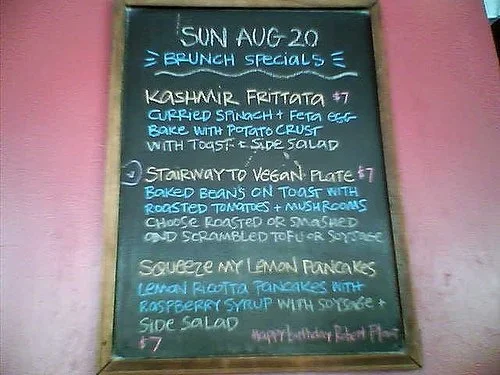 SUN AUG 20
BRUNCH SPECIALS
KASHMIR FRITTATA $7
CURRIED SPINACH + FETA EGG
BAKE WITH POTATO CRUST
WITH TOAST + SIDE SALAD
STAIRWAY TO VEGAN PLATE $7
BAKED BEANS ON TOAST WITH
ROASTED TOMATOES + MUSHROOMS
CHOOSE ROASTED OR SMASHED
AND SCRAMBLED TOFU OR SOYSAGE
SQUEEZE MY LEMON PANCAKES
LEMON RICOTTA PANCAKES WITH
RASPBERRY SYRUP WITH SOYSAGE +
SIDE SALAD
$7
Happy birthday Robert Plant